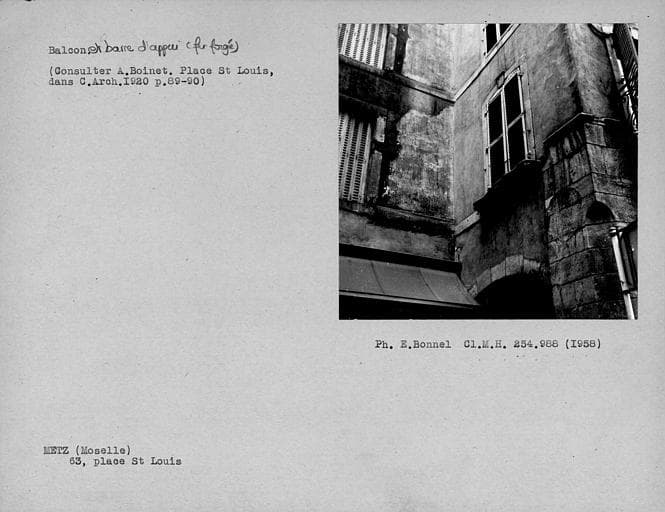 Balcon et barre d'appui (fer forgé)
(Consulter A.Boinet. Place St Louis,
dans C.Arch.I920 p.89-90)
Ph. E.Bonnel Cl.M.H. 254.988 (I958)
METZ (Moselle)
63, place St Louis